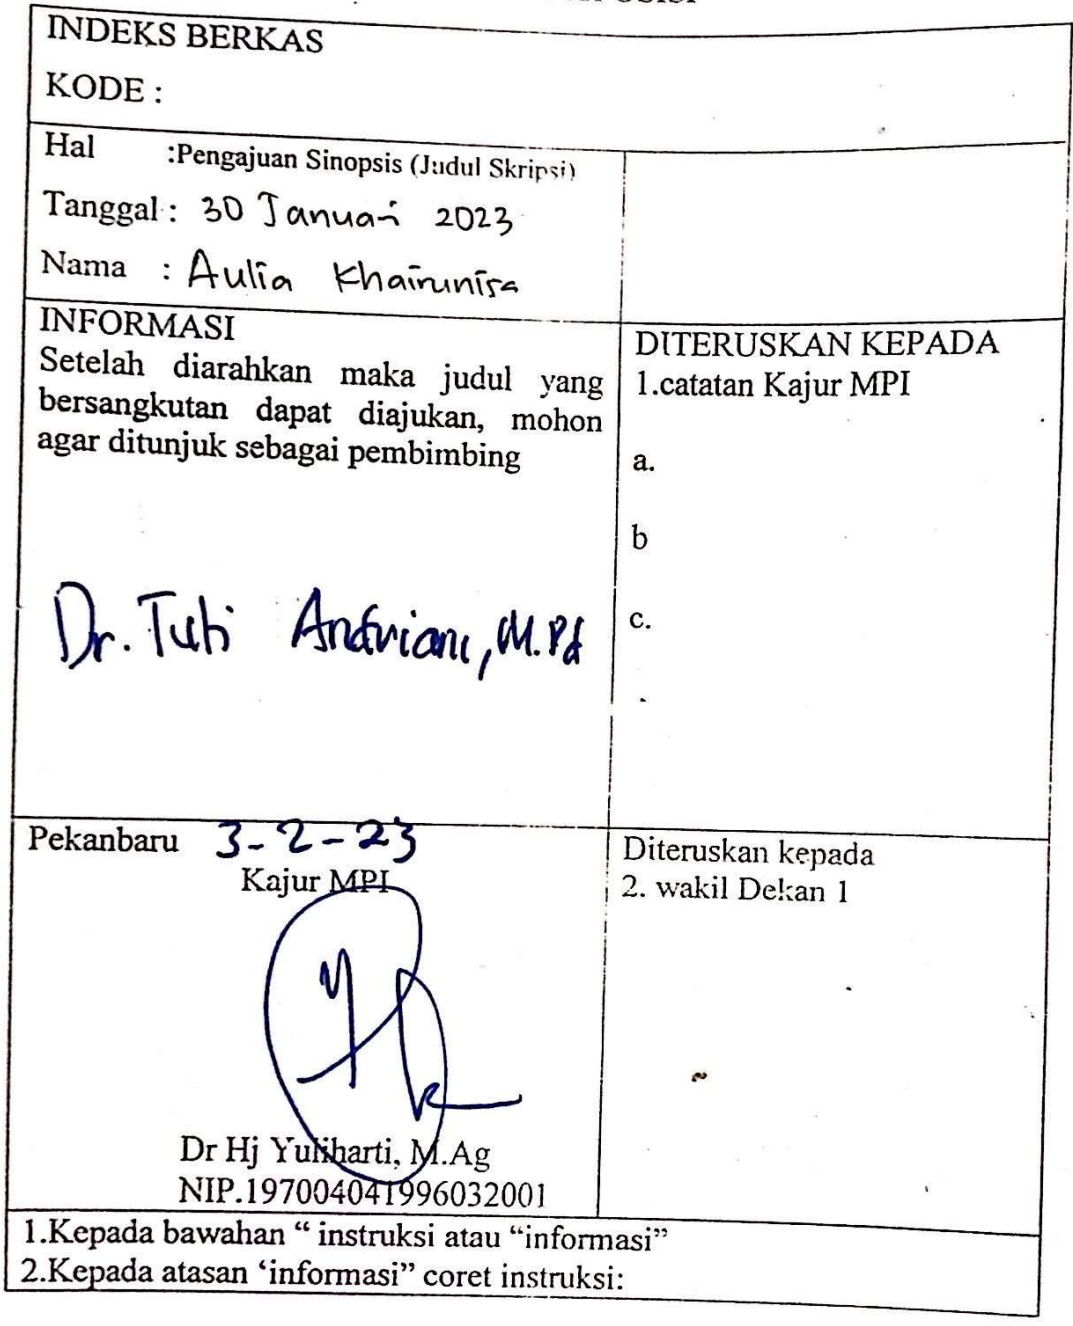 INDEKS BERKAS
KODE :
Hal :Pengajuan Sinopsis (Judul Skripsi)
Tanggal : 30 Januari 2023
Nama : Aulia Khairunisa
INFORMASI
Setelah diarahkan maka judul yang
bersangkutan dapat diajukan, mohon
agar ditunjuk sebagai pembimbing
Dr. Tuti Andriani, M.Pd
DITERUSKAN KEPADA
1.catatan Kajur MPI
a.
b
c.
Pekanbaru 3-2-23
Kajur MPI
Dr Hj Yuliharti, M.Ag
NIP.197004041996032001
Diteruskan kepada
2. wakil Dekan 1
1.Kepada bawahan “ instruksi atau “informasi”
2.Kepada atasan ‘informasi” coret instruksi: